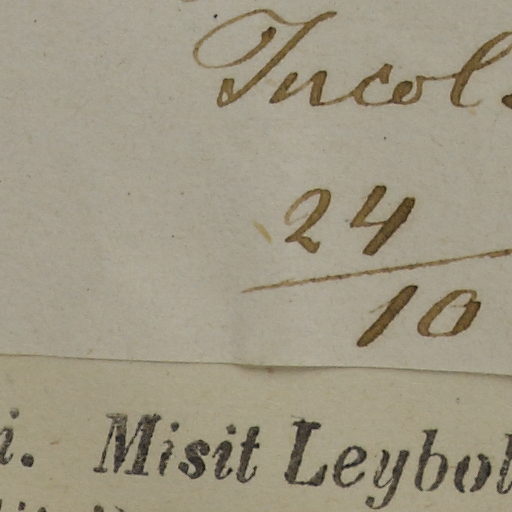 Incol.
24
10
i. Misit Leybol